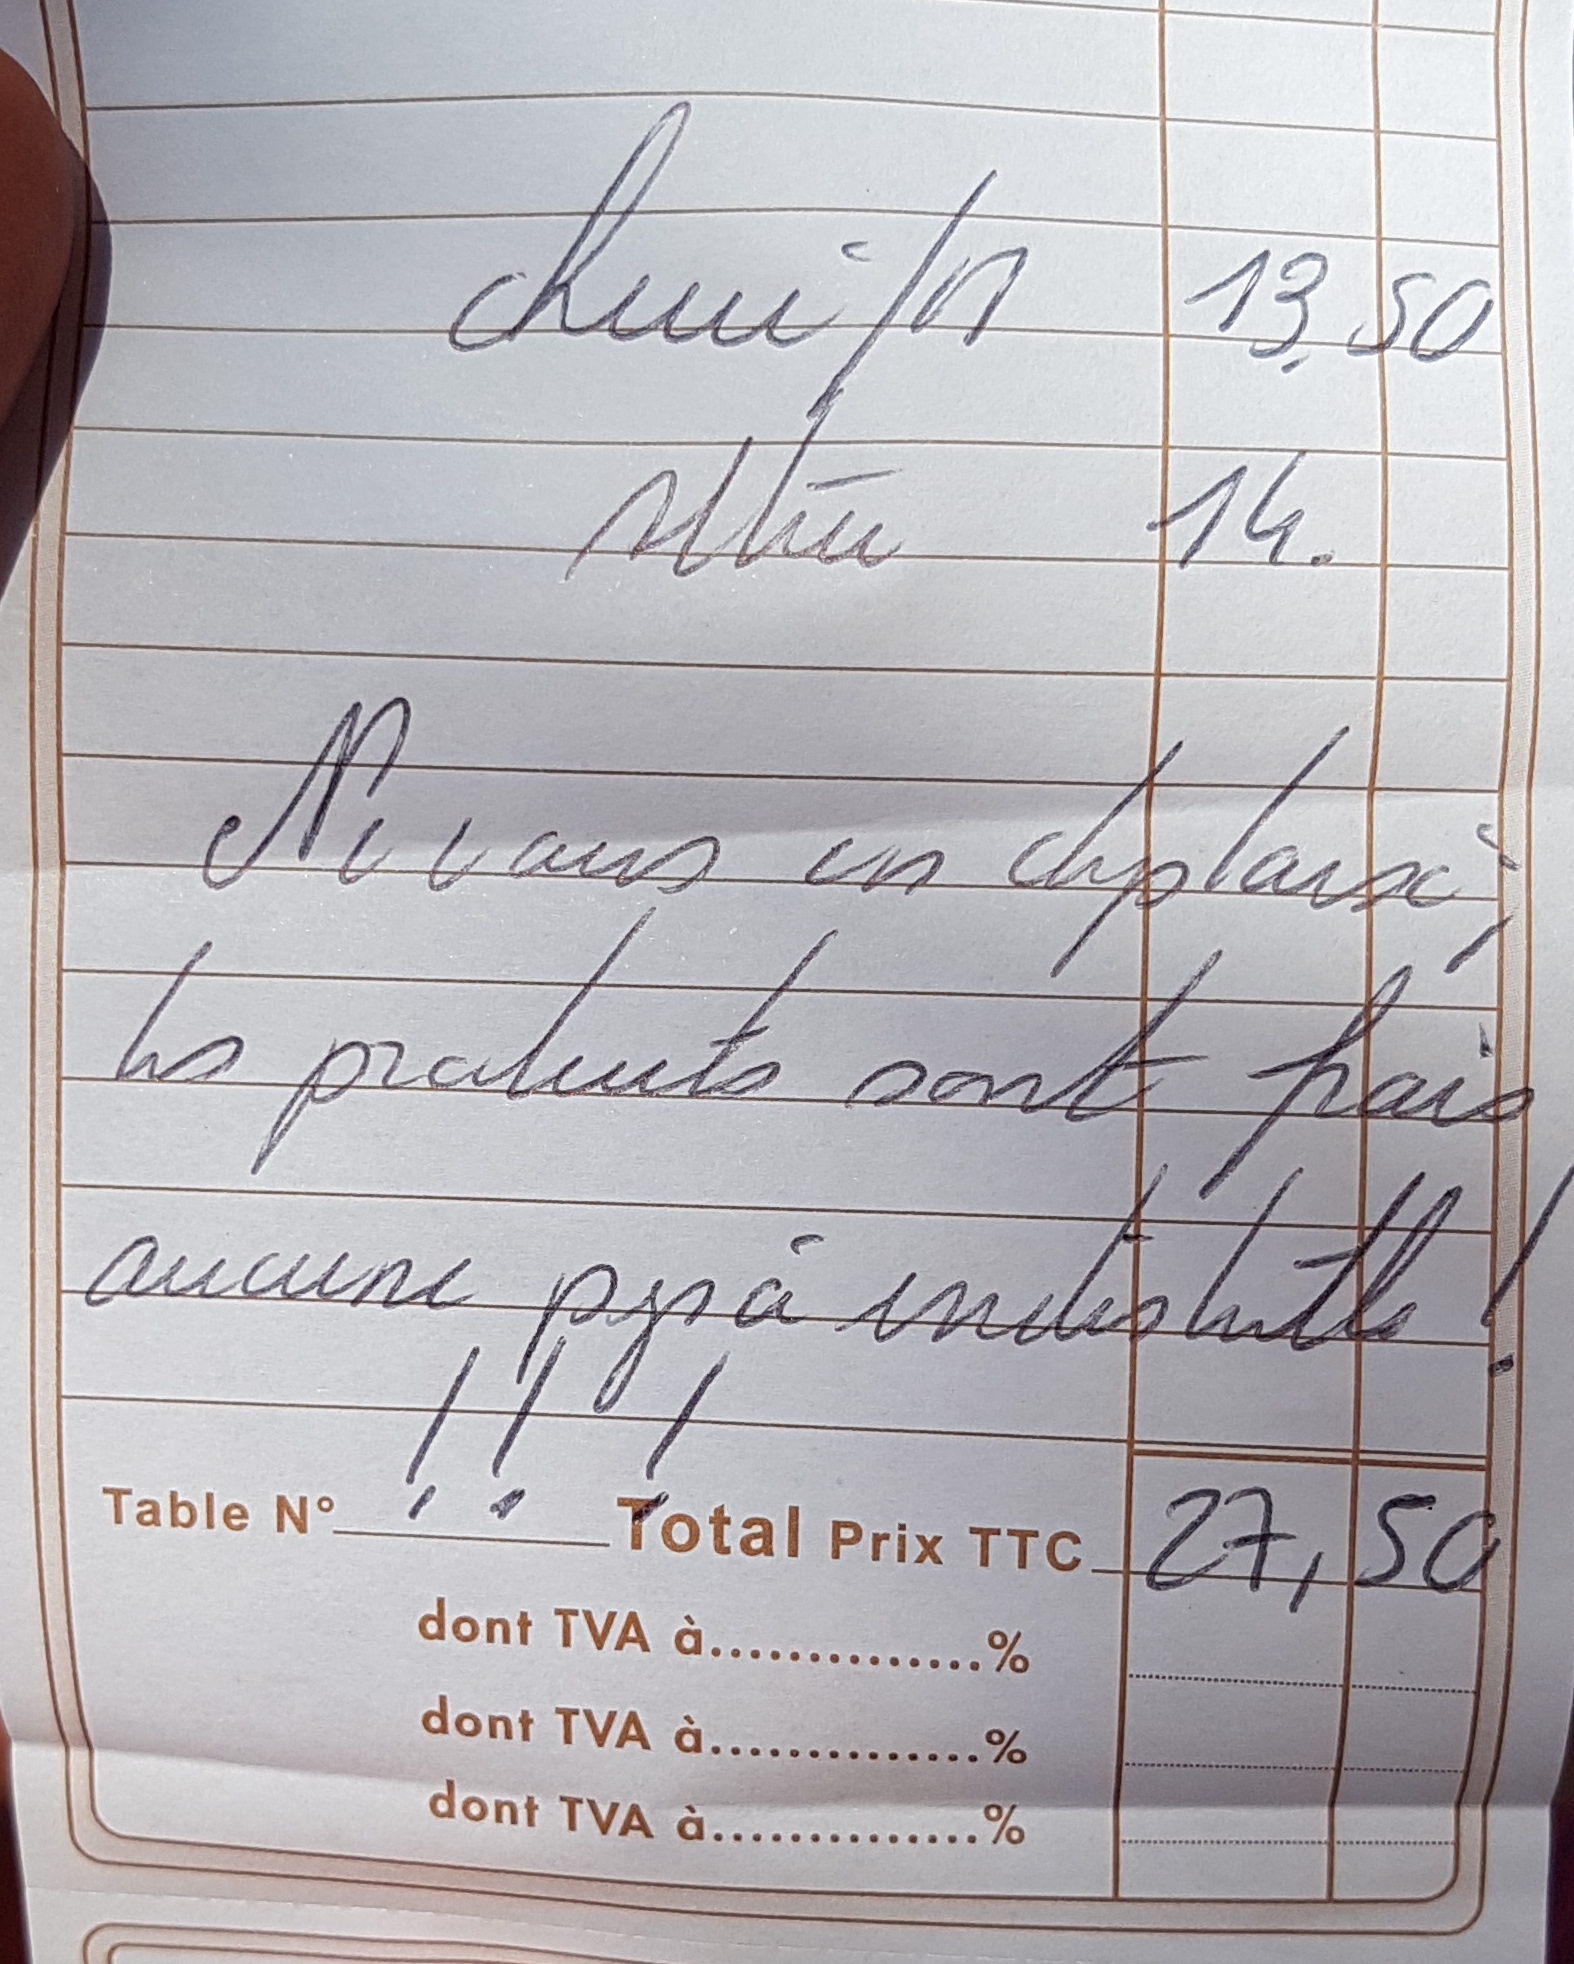 13,50
14.
Ne vous en déplaise,
les produits sont frais
aucune pizza industrielle !
! ! !
Table N° Total Prix TTC 27,50
dont TVA à..............%
dont TVA à..............%
dont TVA à..............%